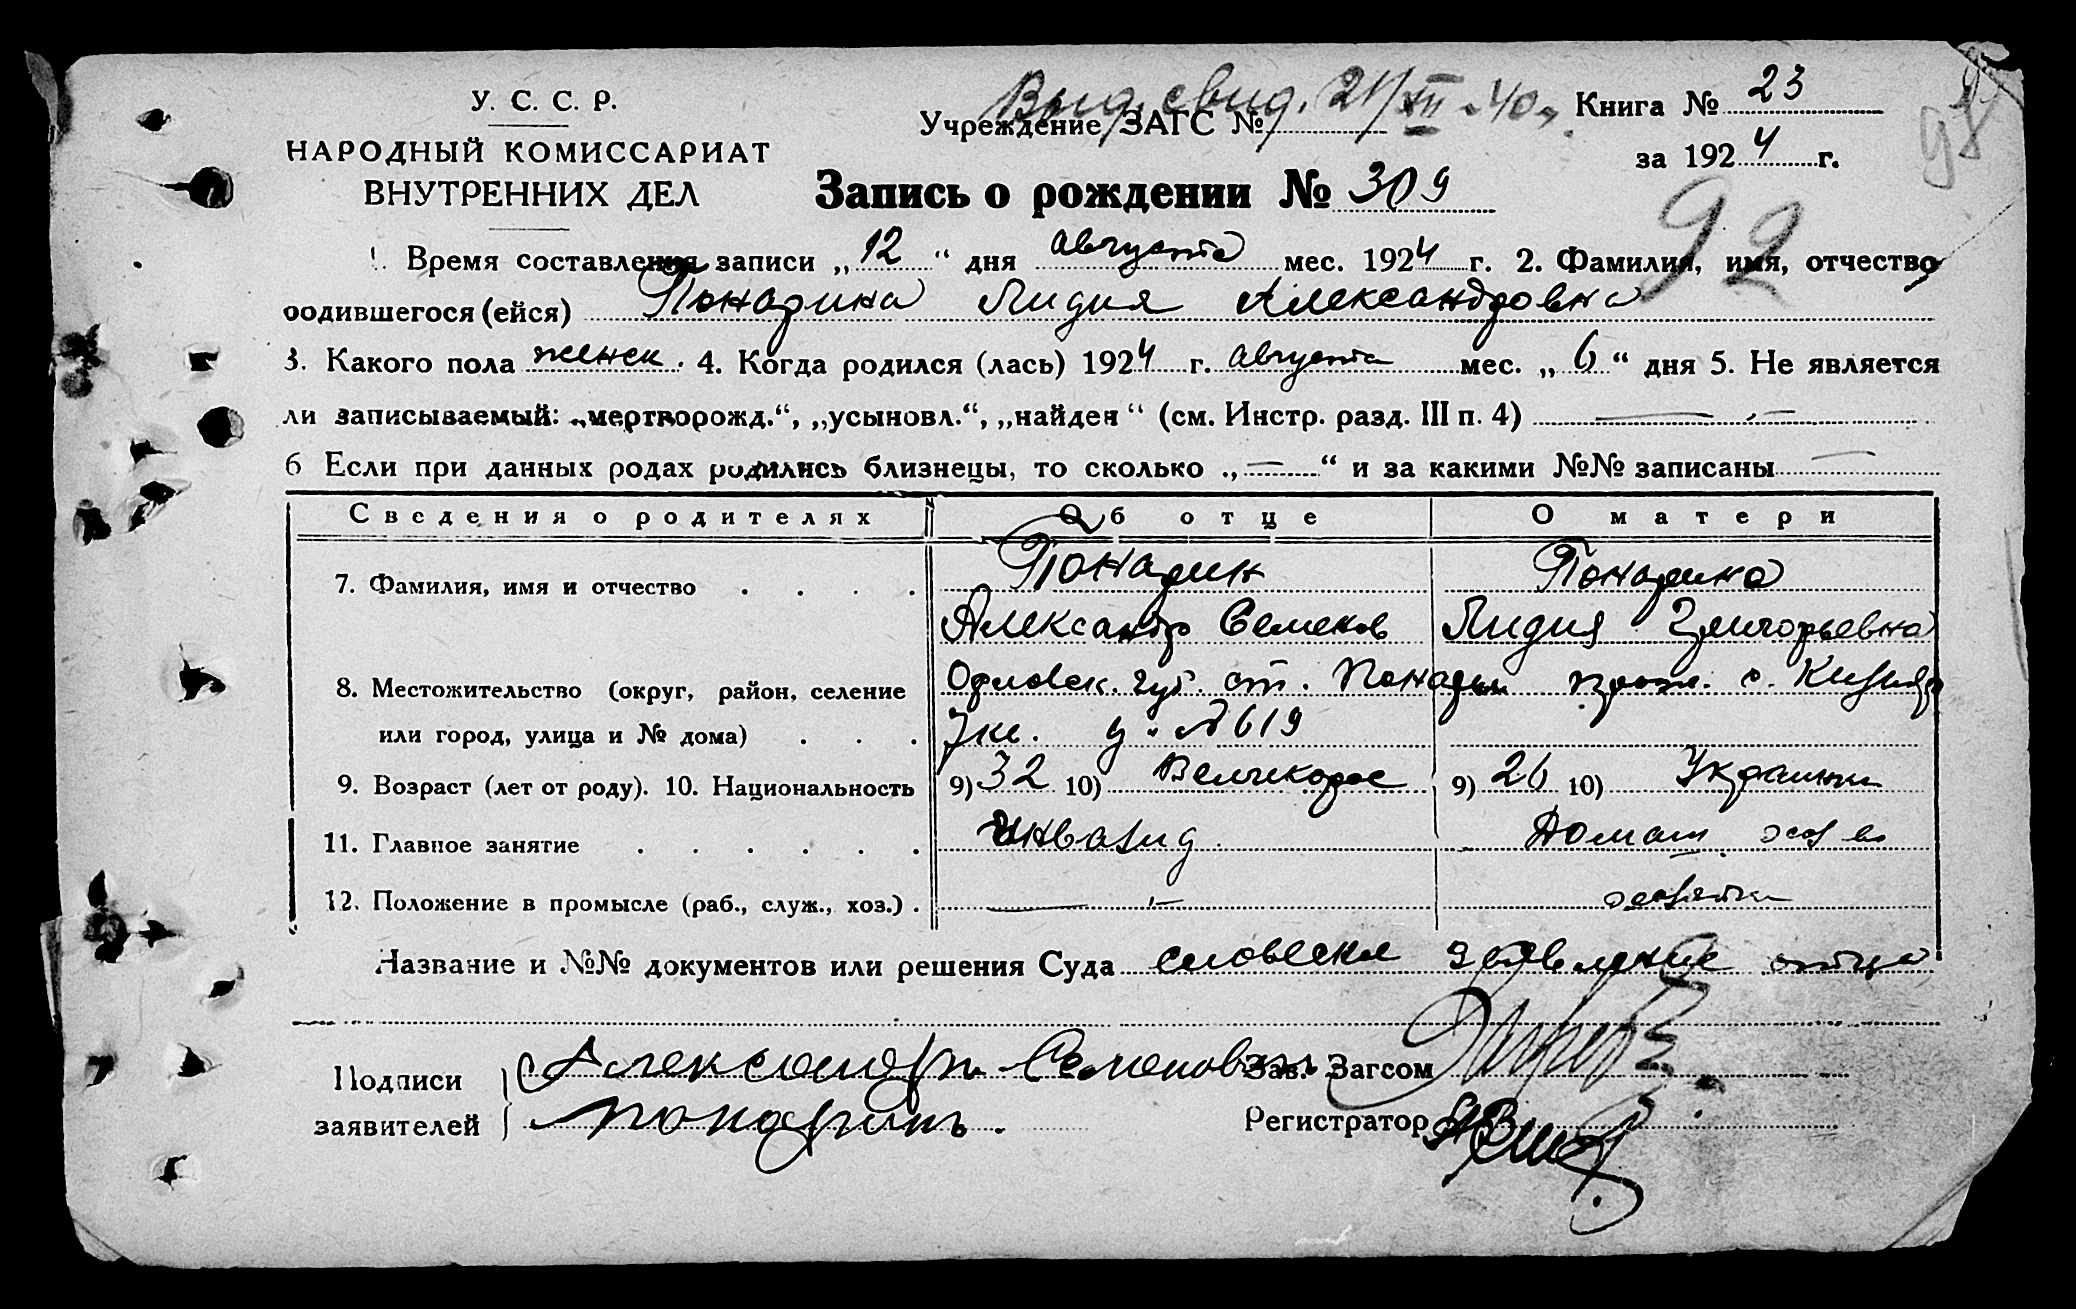 Выд. свид. 21/XII-40г.
98
У. С. С. Р.
НАРОДНЫЙ КОМИССАРИАТ
ВНУТРЕННИХ ДЕЛ
Учреждение ЗАГС №
Книга № 23
за 1924 г.
Запись о рождении № 309
92
1. Время составления записи „12“ дня августа мес. 1924 г. 2. Фамилия, имя, отчество
родившегося (ейся) Понарина Лидия Александровна
3. Какого пола женск. 4. Когда родился (лась) 1924 г. августа мес. „6“ дня 5. Не является
ли записываемый: „мертворожд.“, „усыновл.“, „найден“ (см. Инстр. разд. III п. 4) —
6 Если при данных родах родились близнецы, то сколько „—“ и за какими №№ записаны —
Сведения о родителях Об отце О матери
7. Фамилия, имя и отчество Понарин Понарина
Александр Семенов Лидия Григорьевна
8. Местожительство (округ, район, селение Орловск. губ. ст. Понары
или город, улица и № дома) д. №619
9. Возраст (лет от роду). 10. Национальность 9) 32 10) Великорос 9) 26 10) Украинка
11. Главное занятие Инвалид Домаш. хоз-во
12. Положение в промысле (раб., служ., хоз.) — хозяйка
Название и №№ документов или решения Суда словесное заявление отца
Подписи
заявителей
Александр Семенович
Понаринъ.
Зав. Загсом
Регистратор